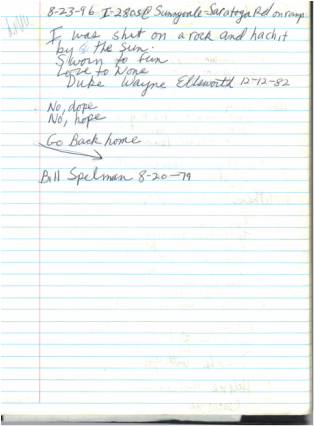 8-23-96 I-280S@ Sunnyvale-Saratoga Rd on ramp
I was shut on a rock and hachit
by the Sun.
Sworn to Fun
Love to None
Duke Wayne Ellsworth 12-12-82
No, dope
No, hope
Go Back home
Bill Spelman 8-20-79